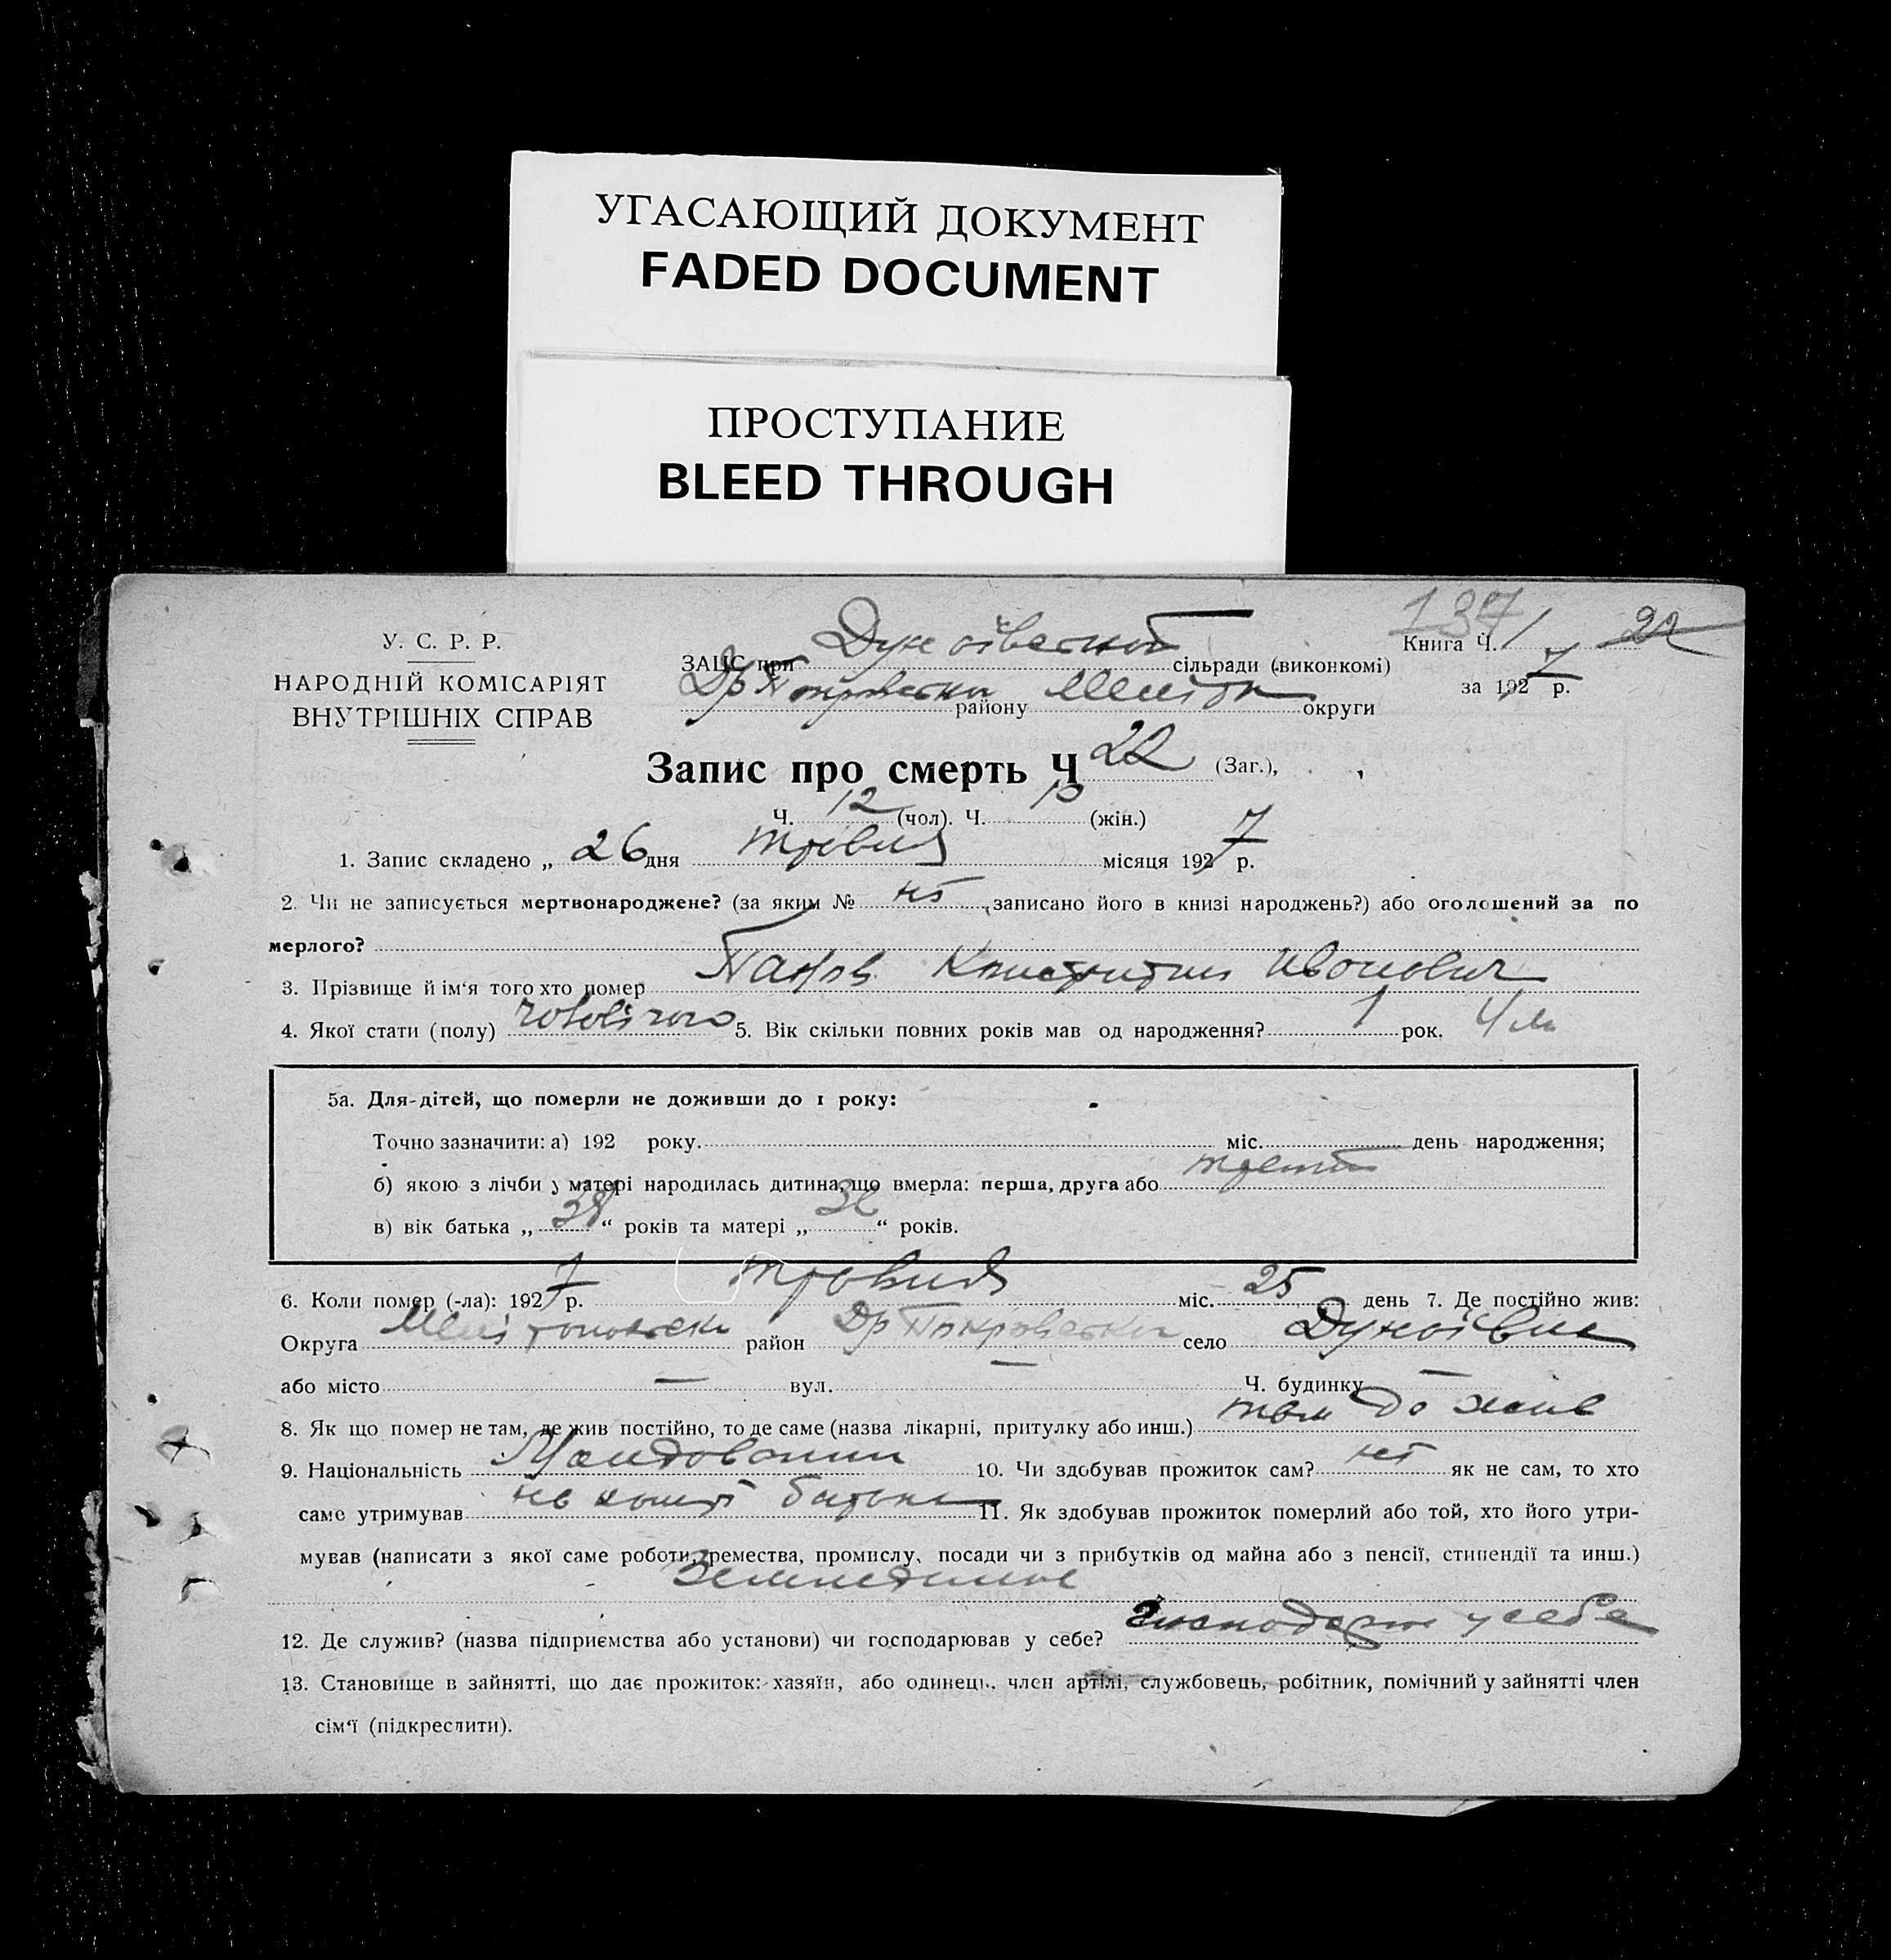 УГАСАЮЩИЙ ДОКУМЕНТ
FADED DOCUMENT
ПРОСТУПАНИЕ
BLEED THROUGH
У. С. Р. Р.
НАРОДНІЙ КОМІСАРІЯТ
ВНУТРІШНІХ СПРАВ
137
ЗАЦС при сільради (виконкомі)
Др Покровськи району Меліт округи
Книга Ч. 1 22
за 1927 р.
Запис про смерть Ч 22 (Заг.),
Ч. 12 (чол). Ч. 10 (жін.)
1. Запис складено „ 26 дня травня місяця 1927 р.
2. Чи не записується мертвонароджене? (за яким № ні записано його в книзі народжень?) або оголошений за по
мерлого?
3. Прізвище й ім‘я того хто помер Іванович
4. Якої стати (полу) 5. Вік скільки повних років мав од народження? 1 рок. 4 м
5а. Для-дітей, що померли не доживши до 1 року:
Точно зазначити: а) 192 року. міс. день народження;
б) якою з лічби у матері народилась дитина, що вмерла: перша, друга або третя
в) вік батька „ 38 “ років та матері „ “ років.
6. Коли помер (-ла): 1927 р. травня міс. 25 день 7. Де постійно жив:
Округа район Др Покровськи село Дунаївка
або місто — вул. — Ч. будинку —
8. Як що помер не там, де жив постійно, то де саме (назва лікарні, притулку або инш.) там де жив
9. Національність 10. Чи здобував прожиток сам? ні як не сам, то хто
саме утримував на кошті батька 11. Як здобував прожиток померлий або той, хто його утри-
мував (написати з якої саме роботи, ремества, промислу, посади чи з прибутків од майна або з пенсії, стипендії та инш.)
12. Де служив? (назва підприємства або установи) чи господарював у себе? у себе
13. Становище в зайнятті, що дає прожиток: хазяїн, або одинець, член артілі, службовець, робітник, помічний у зайнятті член
сім‘ї (підкреслити).